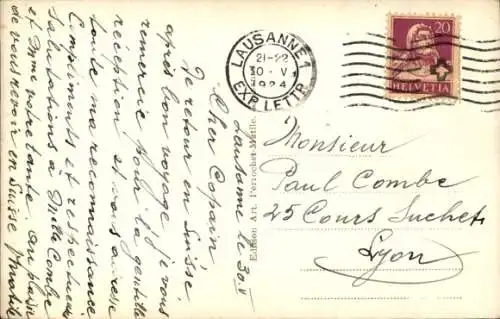 LAUSANNE 1
21-22
30 · V
1924
EXP. LETTR.
20
HELVETIA
Lausanne le 30.V
Cher Copain
De retour en Suisse
après bon voyage, je vous
remercie pour la gentille
réception et vous adresse
toute ma reconnaissance
Compliments et respectueuses
Salutations à Mlle Combe
et Mme votre tante. Au plaisir
de vous revoir en Suisse
Edition Art. Perrochet-Matile.
Monsieur
Paul Combe
25 Cours Suchet
Lyon